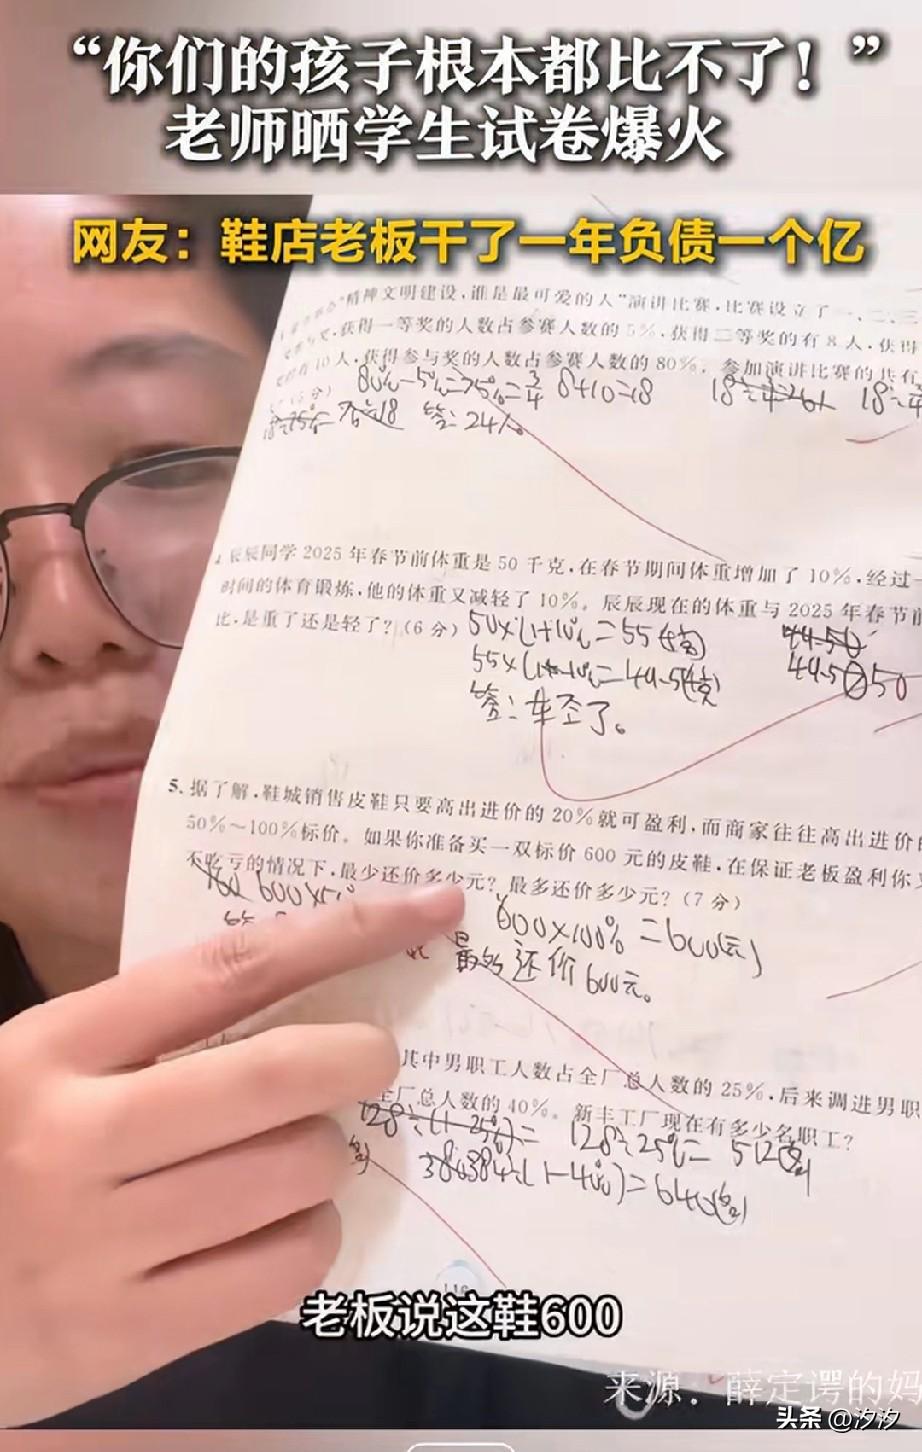 “你们的孩子根本都比不了！”
老师晒学生试卷爆火
网友：鞋店老板干了一年负债一个亿
“精神文明建设,谁是最可爱的人”演讲比赛,比赛设立了一、二、三
奖,获得一等奖的人数占参赛人数的5%,获得二等奖的有8人,获得
10人,获得参与奖的人数占参赛人数的80%。参加演讲比赛的共有
80%-5%=75%=3/4 8+10=18
答：24人。
辰辰同学2025年春节前体重是50千克,在春节期间体重增加了10%,经过一
时间的体育锻炼,他的体重又减轻了10%。辰辰现在的体重与2025年春节前
比,是重了还是轻了?(6分) 50×(1+10%=55(千克)
55×(1-10%=49.5(千克) 49.5 50
答：轻了。
5. 据了解,鞋城销售皮鞋只要高出进价的20%就可盈利,而商家往往高出进价的
50%～100%标价。如果你准备买一双标价600元的皮鞋,在保证老板盈利你又
不吃亏的情况下,最少还价多少元?最多还价多少元?(7分)
600×5
600×100%=600(元)
最多还价600元。
其中男职工人数占全厂总人数的25%,后来调进男职
全厂总人数的40%。新丰工厂现在有多少名职工?
128÷25%=512(名)
384÷(1-40%)=640(名)
老板说这鞋600
来源：薛定谔的妈
头条 @汐汐